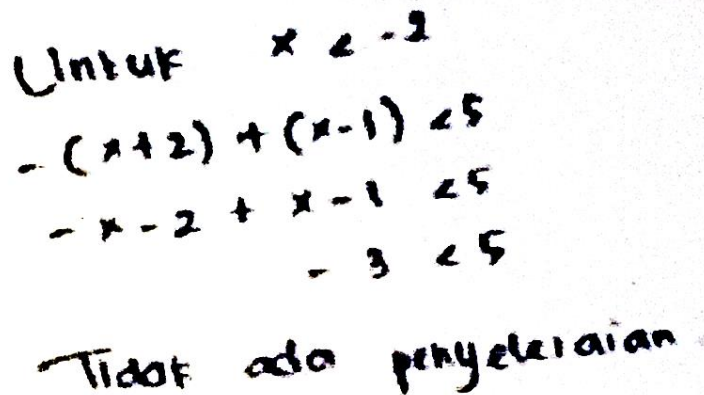 Untuk x < -2
-(x+2) + (x-1) <5
-x-2 + x-1 <5
-3 <5
Tidak ada penyelesaian